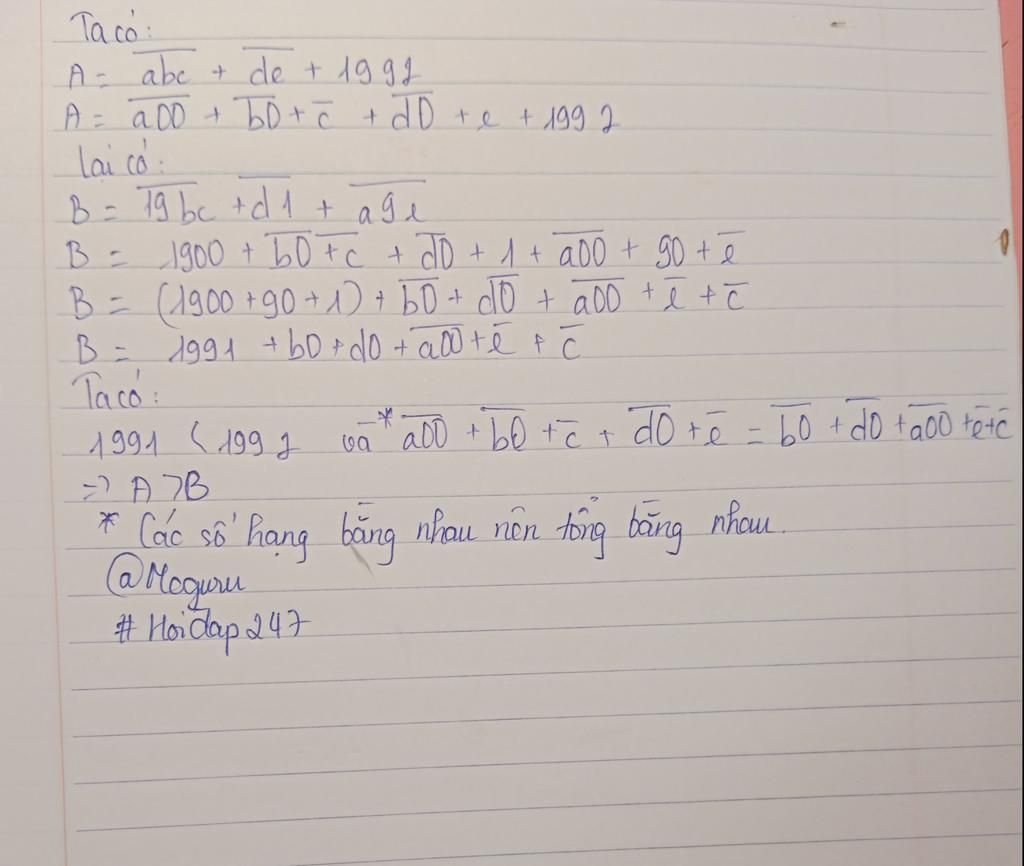 Ta có:
A = abc + de + 1992
A = a00 + b0 + c + d0 + e + 1992
Lại có:
B = 19bc + d1 + a9e
B = 1900 + b0 + c + d0 + 1 + a00 + 90 + e
B = (1900 + 90 + 1) + b0 + d0 + a00 + e + c
B = 1991 + b0 + d0 + a00 + e + c
Ta có:
1991 < 1992 và * a00 + b0 + c + d0 + e = b0 + d0 + a00 + e + c
=> A > B
* Các số hạng bằng nhau nên tổng bằng nhau.
@Mcguru
# Hoidap247